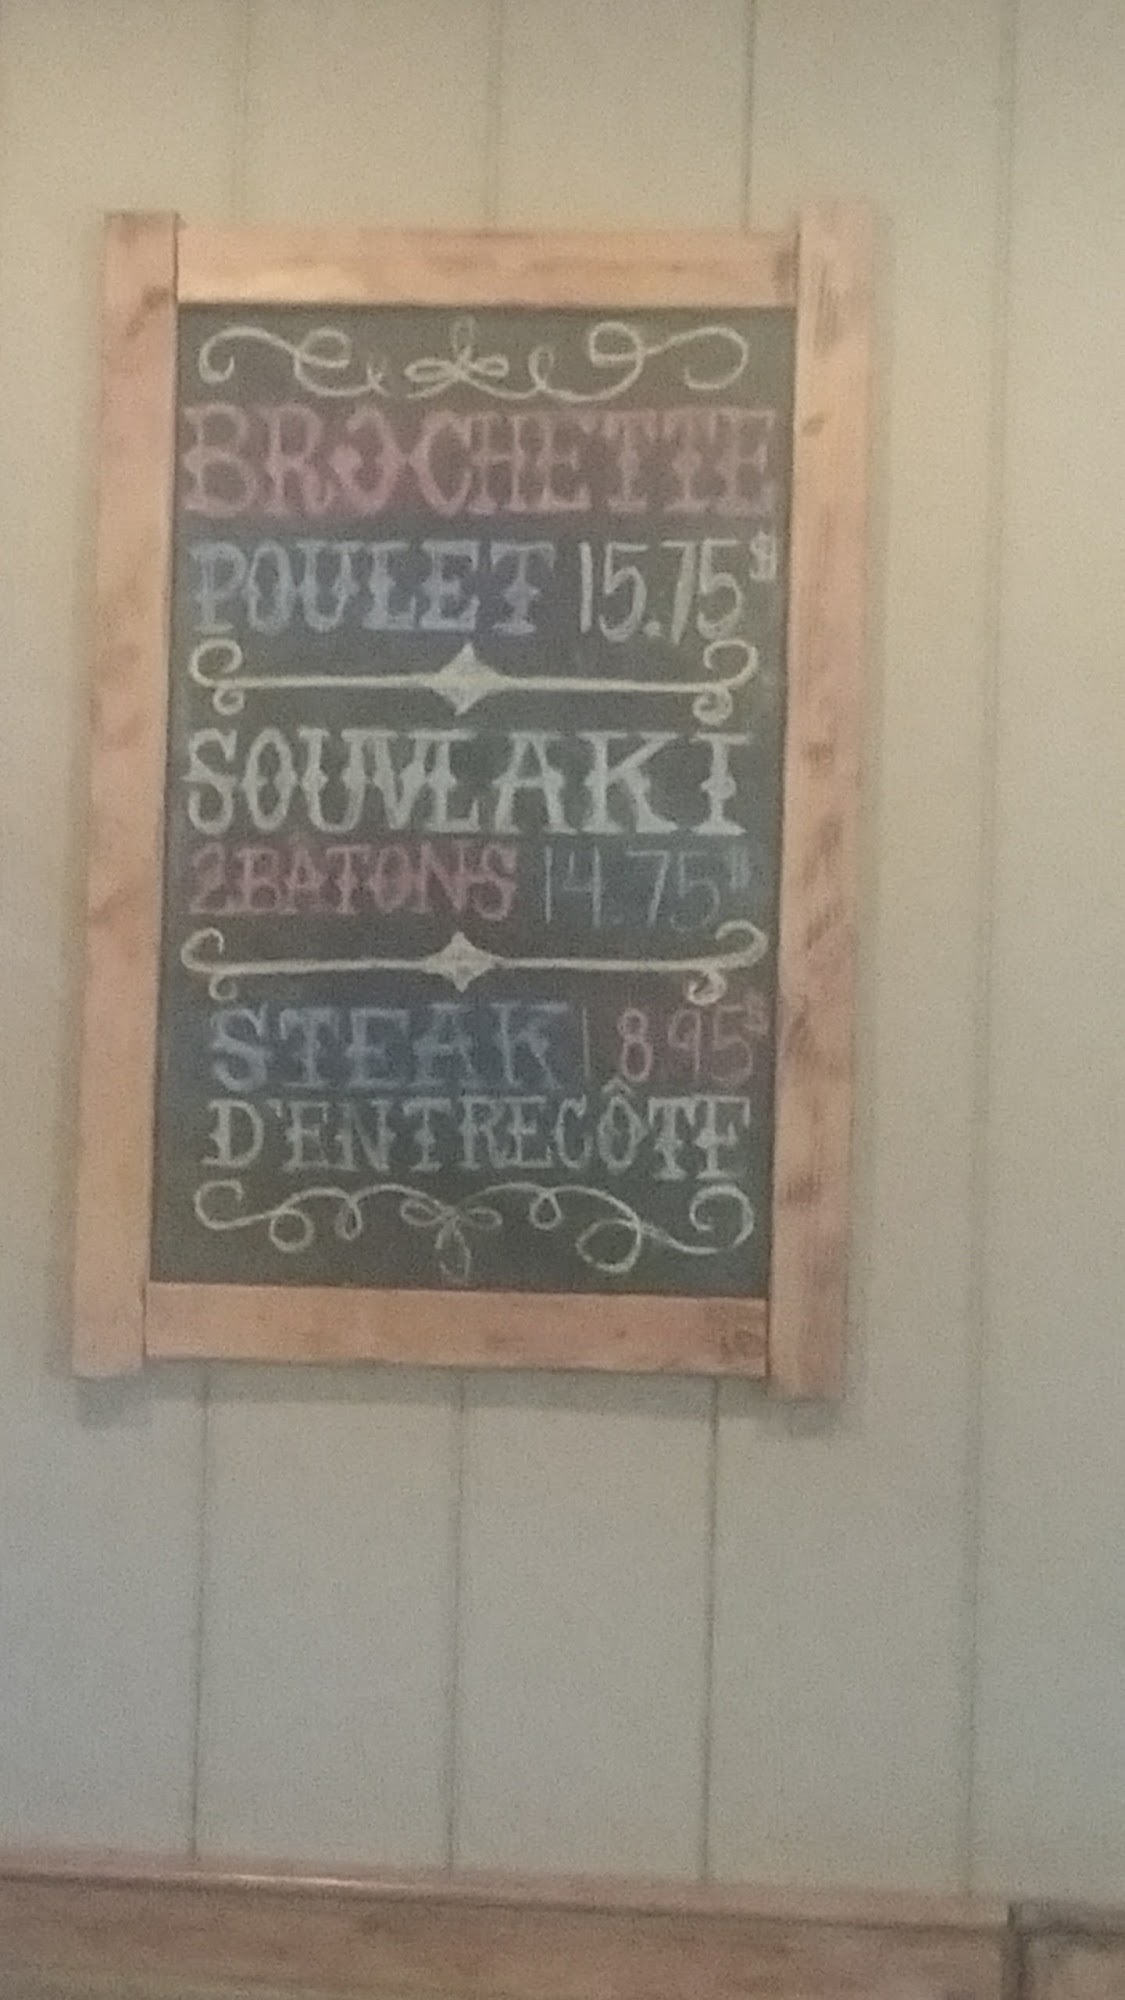 BROCHETTE
POULET 15.75$
SOUVLAKI
2 BÂTONS 14.75$
STEAK 18.95$
D'ENTRECÔTE